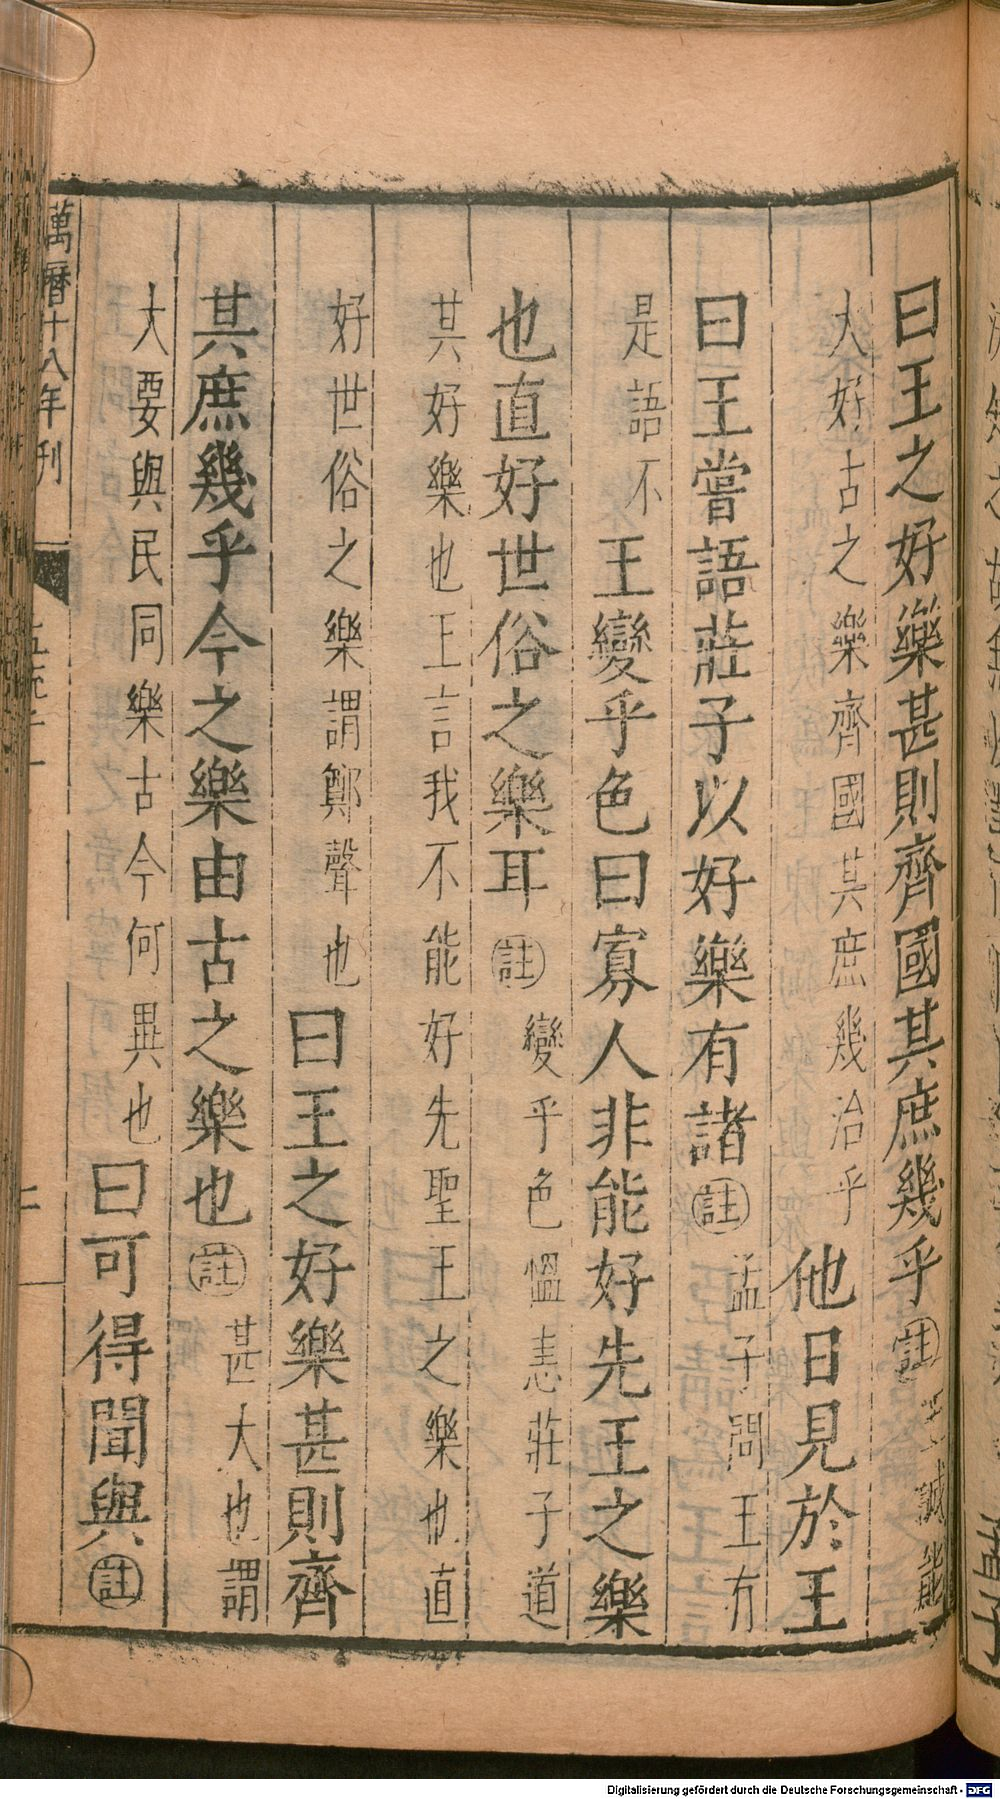 曰王之好樂甚則齊國其庶幾乎註王誠能
大好古之樂齊國其庶幾治乎他日見於王
曰王嘗語莊子以好樂有諸註孟子問王有
是語不王變乎色曰寡人非能好先王之樂
也直好世俗之樂耳註變乎色慍恚莊子道
其好樂也王言我不能好先聖王之樂也直
好世俗之樂謂鄭聲也曰王之好樂甚則齊
其庶幾乎今之樂由古之樂也註甚大也謂
大要與民同樂古今何異也曰可得聞與註
萬曆十八年刊
Digitalisierung gefördert durch die Deutsche Forschungsgemeinschaft - DFG